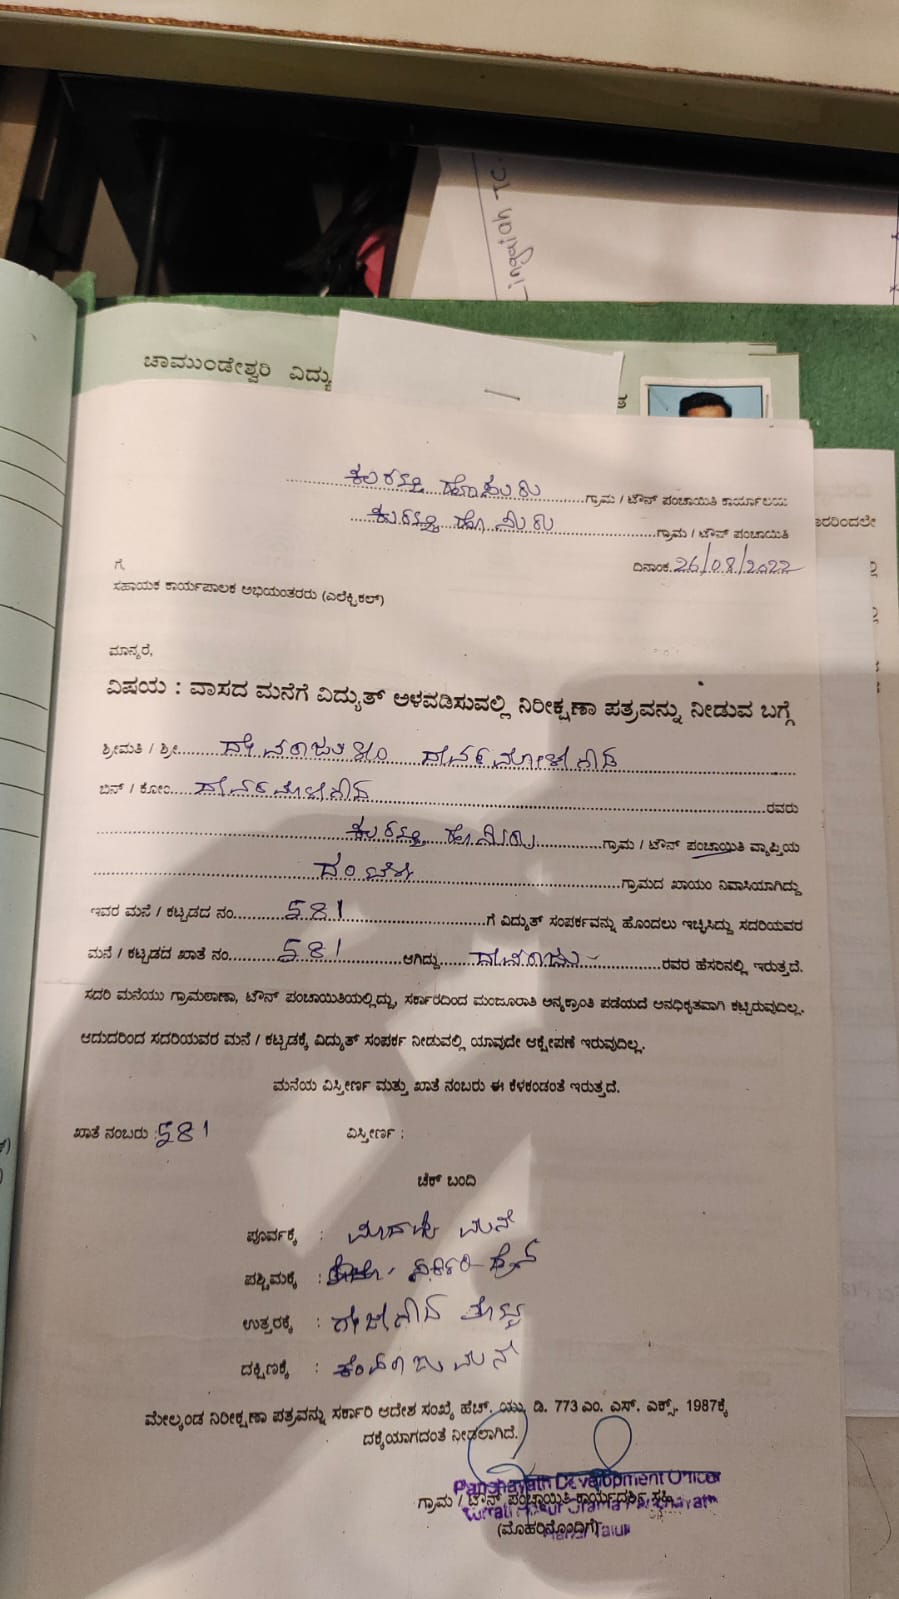 Lingaiah TC.
ಚಾಮುಂಡೇಶ್ವರಿ ವಿದ್ಯು
ತ
ಕುರತ್ತಿ ಹೊಸುರು ಗ್ರಾಮ / ಟೌನ್ ಪಂಚಾಯಿತಿ ಕಾರ್ಯಾಲಯ
ಕುರತ್ತಿ ಹೊಸುರು ಗ್ರಾಮ / ಟೌನ್ ಪಂಚಾಯಿತಿ
ದಿನಾಂಕ. 26/08/2022
ಗೆ,
ಸಹಾಯಕ ಕಾರ್ಯಪಾಲಕ ಅಭಿಯಂತರರು (ಎಲೆಕ್ಟ್ರಿಕಲ್)
ಮಾನ್ಯರೆ,
ವಿಷಯ : ವಾಸದ ಮನೆಗೆ ವಿದ್ಯುತ್ ಅಳವಡಿಸುವಲ್ಲಿ ನಿರೀಕ್ಷಣಾ ಪತ್ರವನ್ನು ನೀಡುವ ಬಗ್ಗೆ
ಶ್ರೀಮತಿ / ಶ್ರೀ ದೇವರಾಜು
ಬಿನ್ / ಕೋಂ ರವರು
ಕುರತ್ತಿ ಹೊಸುರು ಗ್ರಾಮ / ಟೌನ್ ಪಂಚಾಯಿತಿ ವ್ಯಾಪ್ತಿಯ
ಗ್ರಾಮದ ಖಾಯಂ ನಿವಾಸಿಯಾಗಿದ್ದು
ಇವರ ಮನೆ / ಕಟ್ಟಡದ ನಂ. 581 ಗೆ ವಿದ್ಯುತ್ ಸಂಪರ್ಕವನ್ನು ಹೊಂದಲು ಇಚ್ಛಿಸಿದ್ದು ಸದರಿಯವರ
ಮನೆ / ಕಟ್ಟಡದ ಖಾತೆ ನಂ. 581 ಆಗಿದ್ದು ದೇವರಾಜು ರವರ ಹೆಸರಿನಲ್ಲಿ ಇರುತ್ತದೆ.
ಸದರಿ ಮನೆಯು ಗ್ರಾಮಠಾಣಾ, ಟೌನ್ ಪಂಚಾಯಿತಿಯಲ್ಲಿದ್ದು, ಸರ್ಕಾರದಿಂದ ಮಂಜೂರಾತಿ ಅನ್ಯಕ್ರಾಂತಿ ಪಡೆಯದೆ ಅನಧಿಕೃತವಾಗಿ ಕಟ್ಟಿರುವುದಿಲ್ಲ.
ಆದುದರಿಂದ ಸದರಿಯವರ ಮನೆ / ಕಟ್ಟಡಕ್ಕೆ ವಿದ್ಯುತ್ ಸಂಪರ್ಕ ನೀಡುವಲ್ಲಿ ಯಾವುದೇ ಆಕ್ಷೇಪಣೆ ಇರುವುದಿಲ್ಲ.
ಮನೆಯ ವಿಸ್ತೀರ್ಣ ಮತ್ತು ಖಾತೆ ನಂಬರು ಈ ಕೆಳಕಂಡಂತೆ ಇರುತ್ತದೆ.
ಖಾತೆ ನಂಬರು : 581 ವಿಸ್ತೀರ್ಣ :
ಚೆಕ್ ಬಂದಿ
ಪೂರ್ವಕ್ಕೆ : ಮನೆ
ಪಶ್ಚಿಮಕ್ಕೆ :
ಉತ್ತರಕ್ಕೆ :
ದಕ್ಷಿಣಕ್ಕೆ : ಕೆಂಪರಾಜು ಮನೆ
ಮೇಲ್ಕಂಡ ನಿರೀಕ್ಷಣಾ ಪತ್ರವನ್ನು ಸರ್ಕಾರಿ ಆದೇಶ ಸಂಖ್ಯೆ ಹೆಚ್. ಯು. ಡಿ. 773 ಎಂ. ಎಸ್. ಎಕ್ಸ್. 1987ಕ್ಕೆ
ದಕ್ಕೆಯಾಗದಂತೆ ನೀಡಲಾಗಿದೆ.
Panchayath Development Officer
ಗ್ರಾಮ / ಟೌನ್ ಪಂಚಾಯಿತಿ ಕಾರ್ಯದರ್ಶಿ ಸಹಿ
(ಮೊಹರಿನೊಂದಿಗೆ)